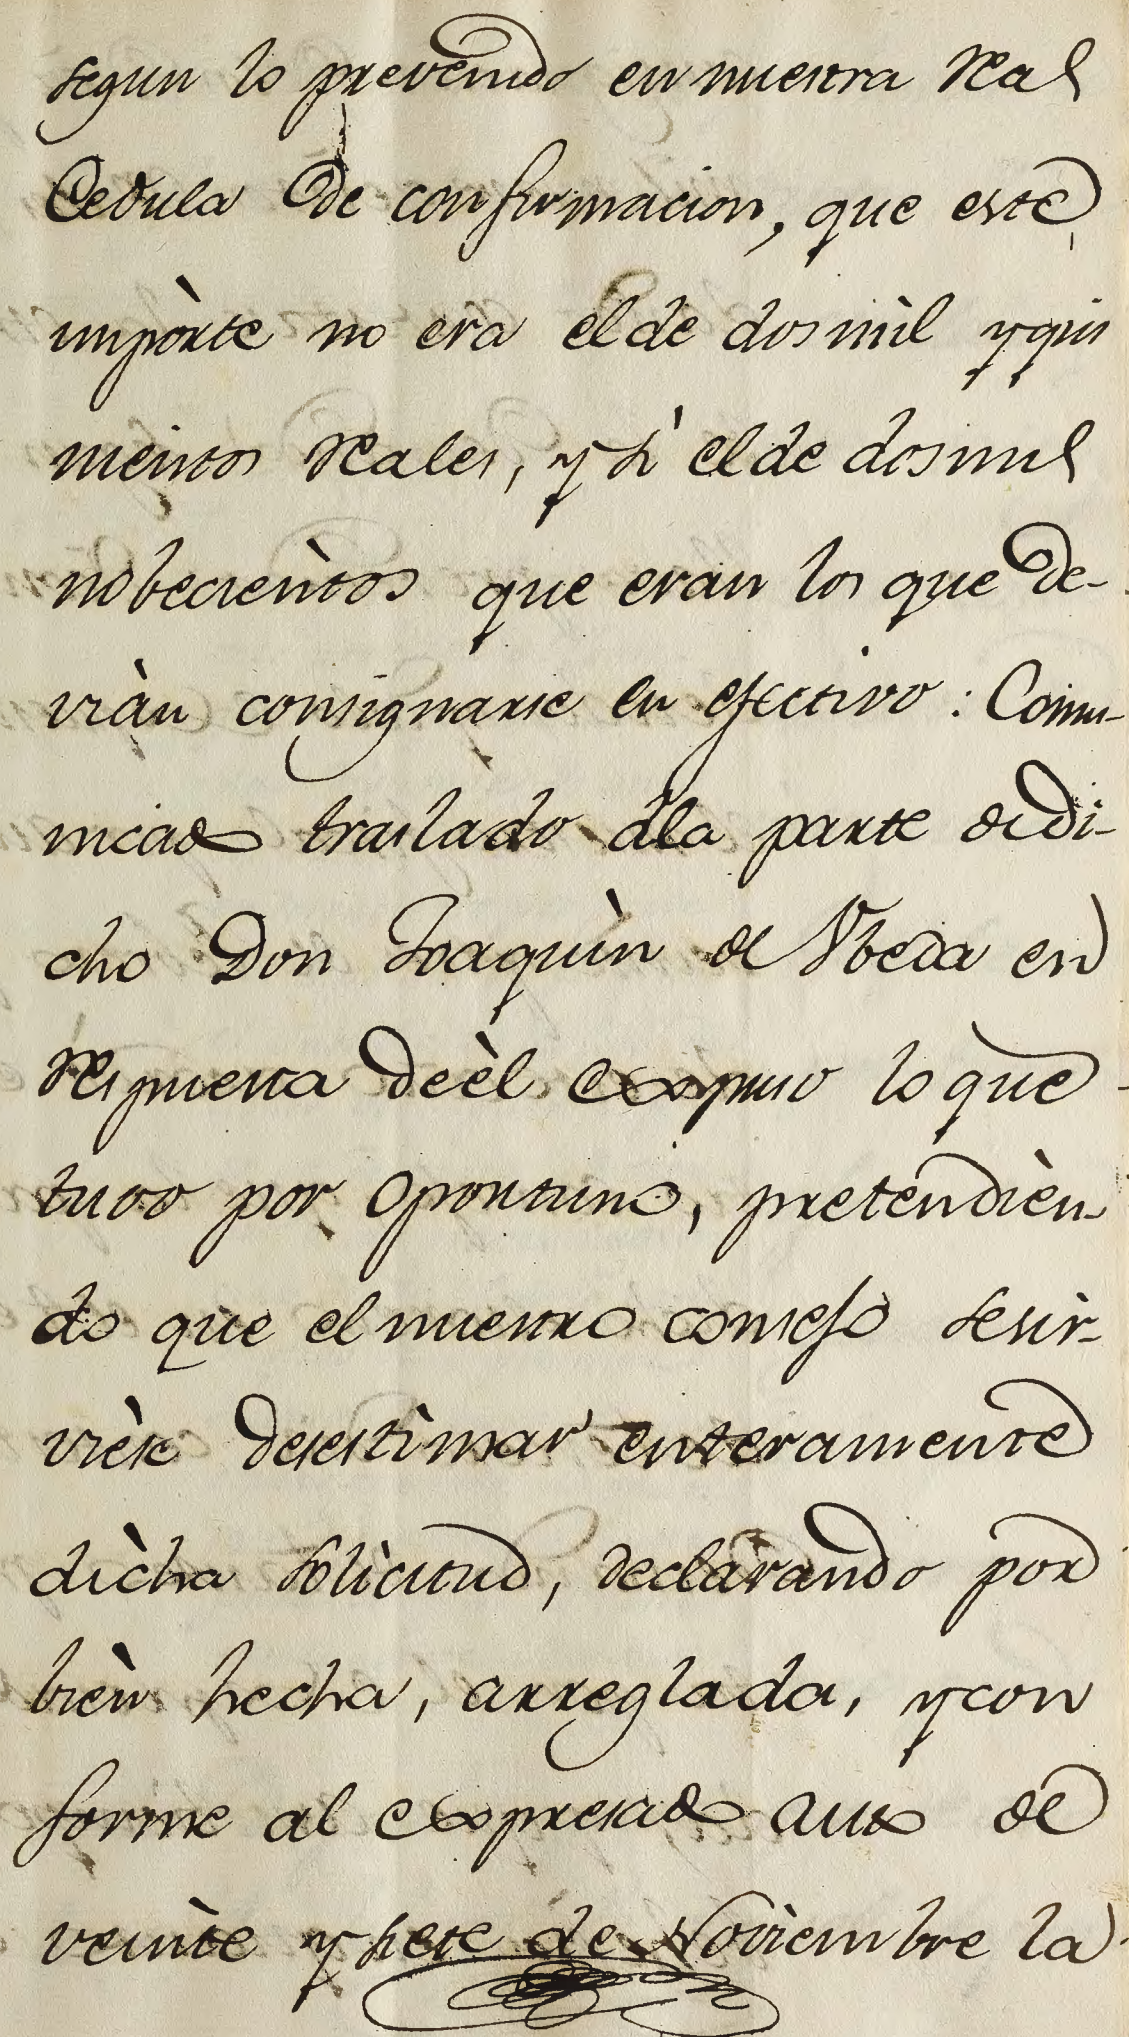 segun lo prevenido en nuestra Real
Cedula de confirmacion, que este
impòrte no era el de dos mìl y qui
nientos Reales, y sì el de dos mil
nobecièntos que eran los que de-
viàn consignarse en efectivo: Comu-
nicado traslado a la parte de di-
cho Don Joaquìn de Vbeda en
Respuesta de èl expuso lo que
tuvo por oportuno, pretendièn-
do que el nuestro consejo se sir-
vièse desestìmar enteramente
dìcha solìcitud, declarando por
bièn hecha, arreglada, y con
forme al expresado auto de
veìnte y siete de Novièmbre la